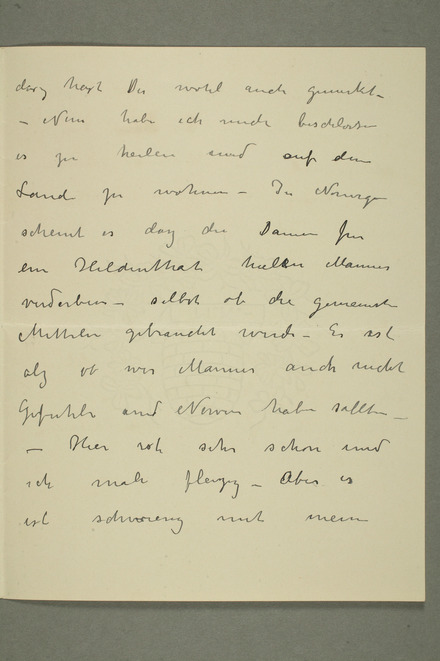 dazz hast Du wohl auch gemerkt –
– Nun habe ich mich beschlossen
es zu heilen und auf dem
Lande zu wohnen – In Norwegen
scheint es dazz die Damen für
ein Heldenthat halten Männer
verderben – selbst ob die gemeinste
Mitteln gebraucht werde – Es ist
alz ob wir Männer auch nicht
Gefühle und Nerven habe sollten –
– Hier ist sehr schön und
ich male fleizig – Aber es
ist schwierig mit mein